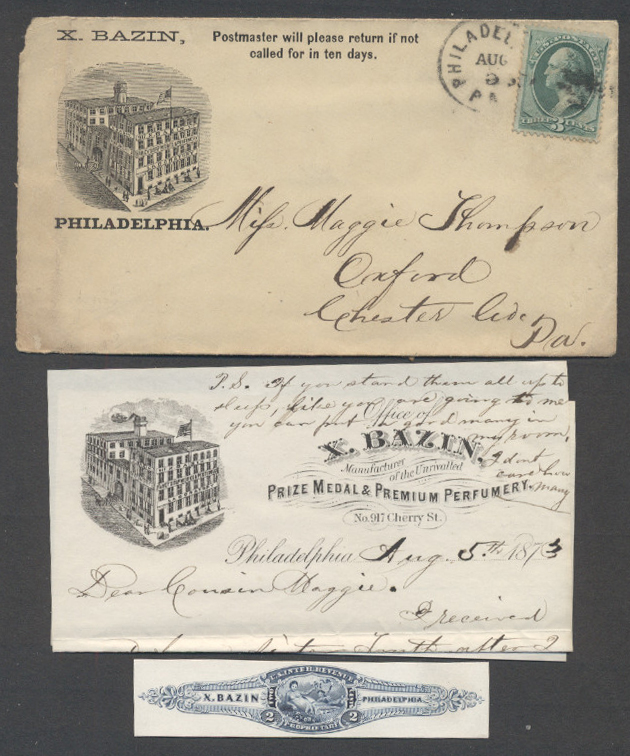 X. BAZIN,
Postmaster will please return if not
called for in ten days.
PHILADEL
AUG
PA
U.S. POSTAGE
THREE 3 CENTS
PHILADELPHIA.
Miss. Maggie Thompson
Oxford
Chester Co.
Pa.
P.S. If you stand them all up to
sleep, like you are going to me
you can put a good many in
my room,
I dont
care how
many
Office of
X. BAZIN,
Manufacturer
of the Unrivalled
PRIZE MEDAL & PREMIUM PERFUMERY.
No. 917 Cherry St.
Philadelphia Aug. 5th. 1873
Dear Cousin Maggie.
I received
U.S. INTER. REVENUE
X. BAZIN
PHILADELPHIA.
2 2
PROPRIETARY